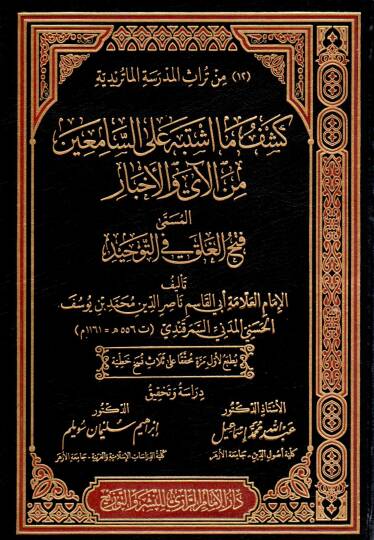 (١٢) مِنْ تُرَاثِ المَدْرَسَةِ المَاتُرِيْدِيَّةِ
كَشْفُ مَا اشْتَبَهَ عَلَى السَّامِعِيْنَ
مِنَ الْآيِ وَالْأَخْبَارِ
المُسَمَّى
فَتْحُ الغَلَقِ فِي التَّوْحِيْدِ
تَأْلِيْفُ
الإِمَامِ العَلَّامَةِ أَبِي القَاسِمِ نَاصِرِ الدِّيْنِ مُحَمَّدِ بْنِ يُوسُفَ
الحُسَيْنِيِّ المَدَنِيِّ السَّمَرْقَنْدِيِّ (ت ٥٥٦هـ = ١١٦١م)
يُطْبَعُ لِأَوَّلِ مَرَّةٍ مُحَقَّقًا عَلَى ثَلَاثِ نُسَخٍ خَطِّيَّةٍ
دِرَاسَةُ وَتَحْقِيْقُ
الأُسْتَاذِ الدُّكْتُورِ
عَبْدِ اللهِ مُحَمَّدِ إِسْمَاعِيلَ
كلية أصول الدين - جامعة الأزهر
الدُّكْتُورِ
إِبْرَاهِيمَ سُلَيْمَانَ سُوَيْلِم
كلية الدراسات الإسلامية والعربية - جامعة الأزهر
دَارُ الإِمَامِ الرَّازِي لِلنَّشْرِ وَالتَّوْزِيْعِ